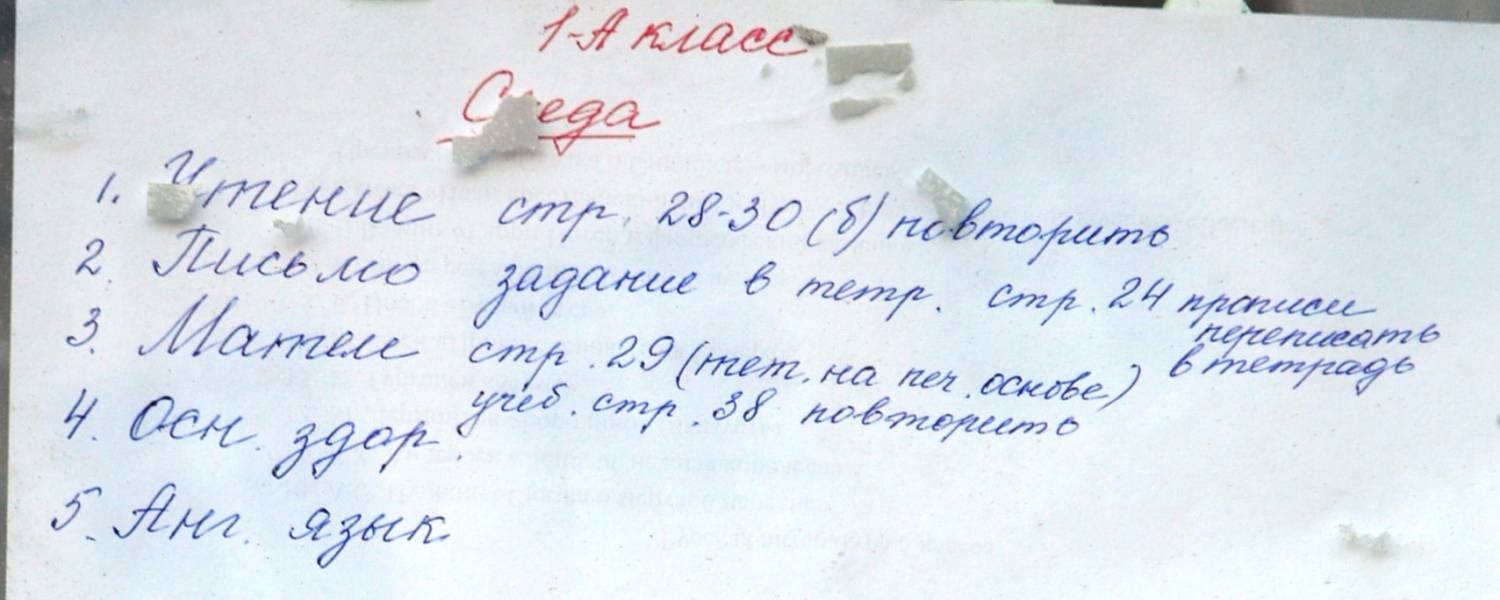 1-А класс
Среда
1. Чтение стр. 28-30 (б) повторить
2. Письмо задание в тетр. стр. 24 прописи
переписать
в тетрадь
3. Матем стр. 29 (тет. на печ. основе)
учеб. стр. 38 повторить
4. Осн. здор
5. Анг. язык